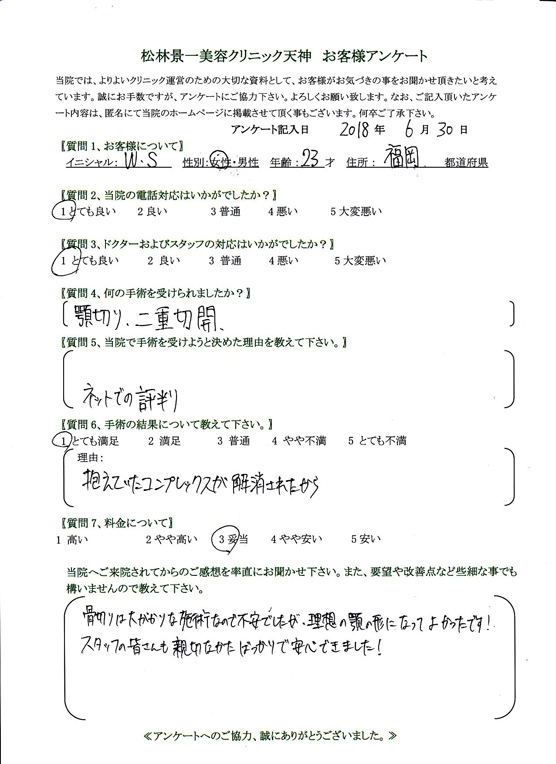 松林景一美容クリニック天神　お客様アンケート
当院では、よりよいクリニック運営のための大切な資料として、お客様がお気づきの事をお聞かせ頂きたいと考え
ています。誠にお手数ですが、アンケートにご協力下さい。よろしくお願い致します。なお、ご記入頂いたアンケ
ート内容は、匿名にて当院のホームページに掲載させて頂く事もございます。何卒ご了承下さい。
アンケート記入日　2018年　6月30日
〖質問1、お客様について〗
イニシャル：W.S　性別：女性・男性　年齢：23才　住所：福岡　都道府県
〖質問2、当院の電話対応はいかがでしたか？〗
1とても良い　2良い　3普通　4悪い　5大変悪い
〖質問3、ドクターおよびスタッフの対応はいかがでしたか？〗
1とても良い　2良い　3普通　4悪い　5大変悪い
〖質問4、何の手術を受けられましたか？〗
顎切り、二重切開、
〖質問5、当院で手術を受けようと決めた理由を教えて下さい。〗
ネットでの評判
〖質問6、手術の結果について教えて下さい。〗
1とても満足　2満足　3普通　4やや不満　5とても不満
理由：
抱えていたコンプレックスが解消されたから
〖質問7、料金について〗
1高い　2やや高い　3妥当　4やや安い　5安い
当院へご来院されてからのご感想を率直にお聞かせ下さい。また、要望や改善点など些細な事でも
構いませんので教えて下さい。
骨切りは大がかりな施術なので不安でしたが、理想の顎の形になってよかったです！
スタッフの皆さんも親切なかたばっかりで安心できました！
≪アンケートへのご協力、誠にありがとうございました。≫